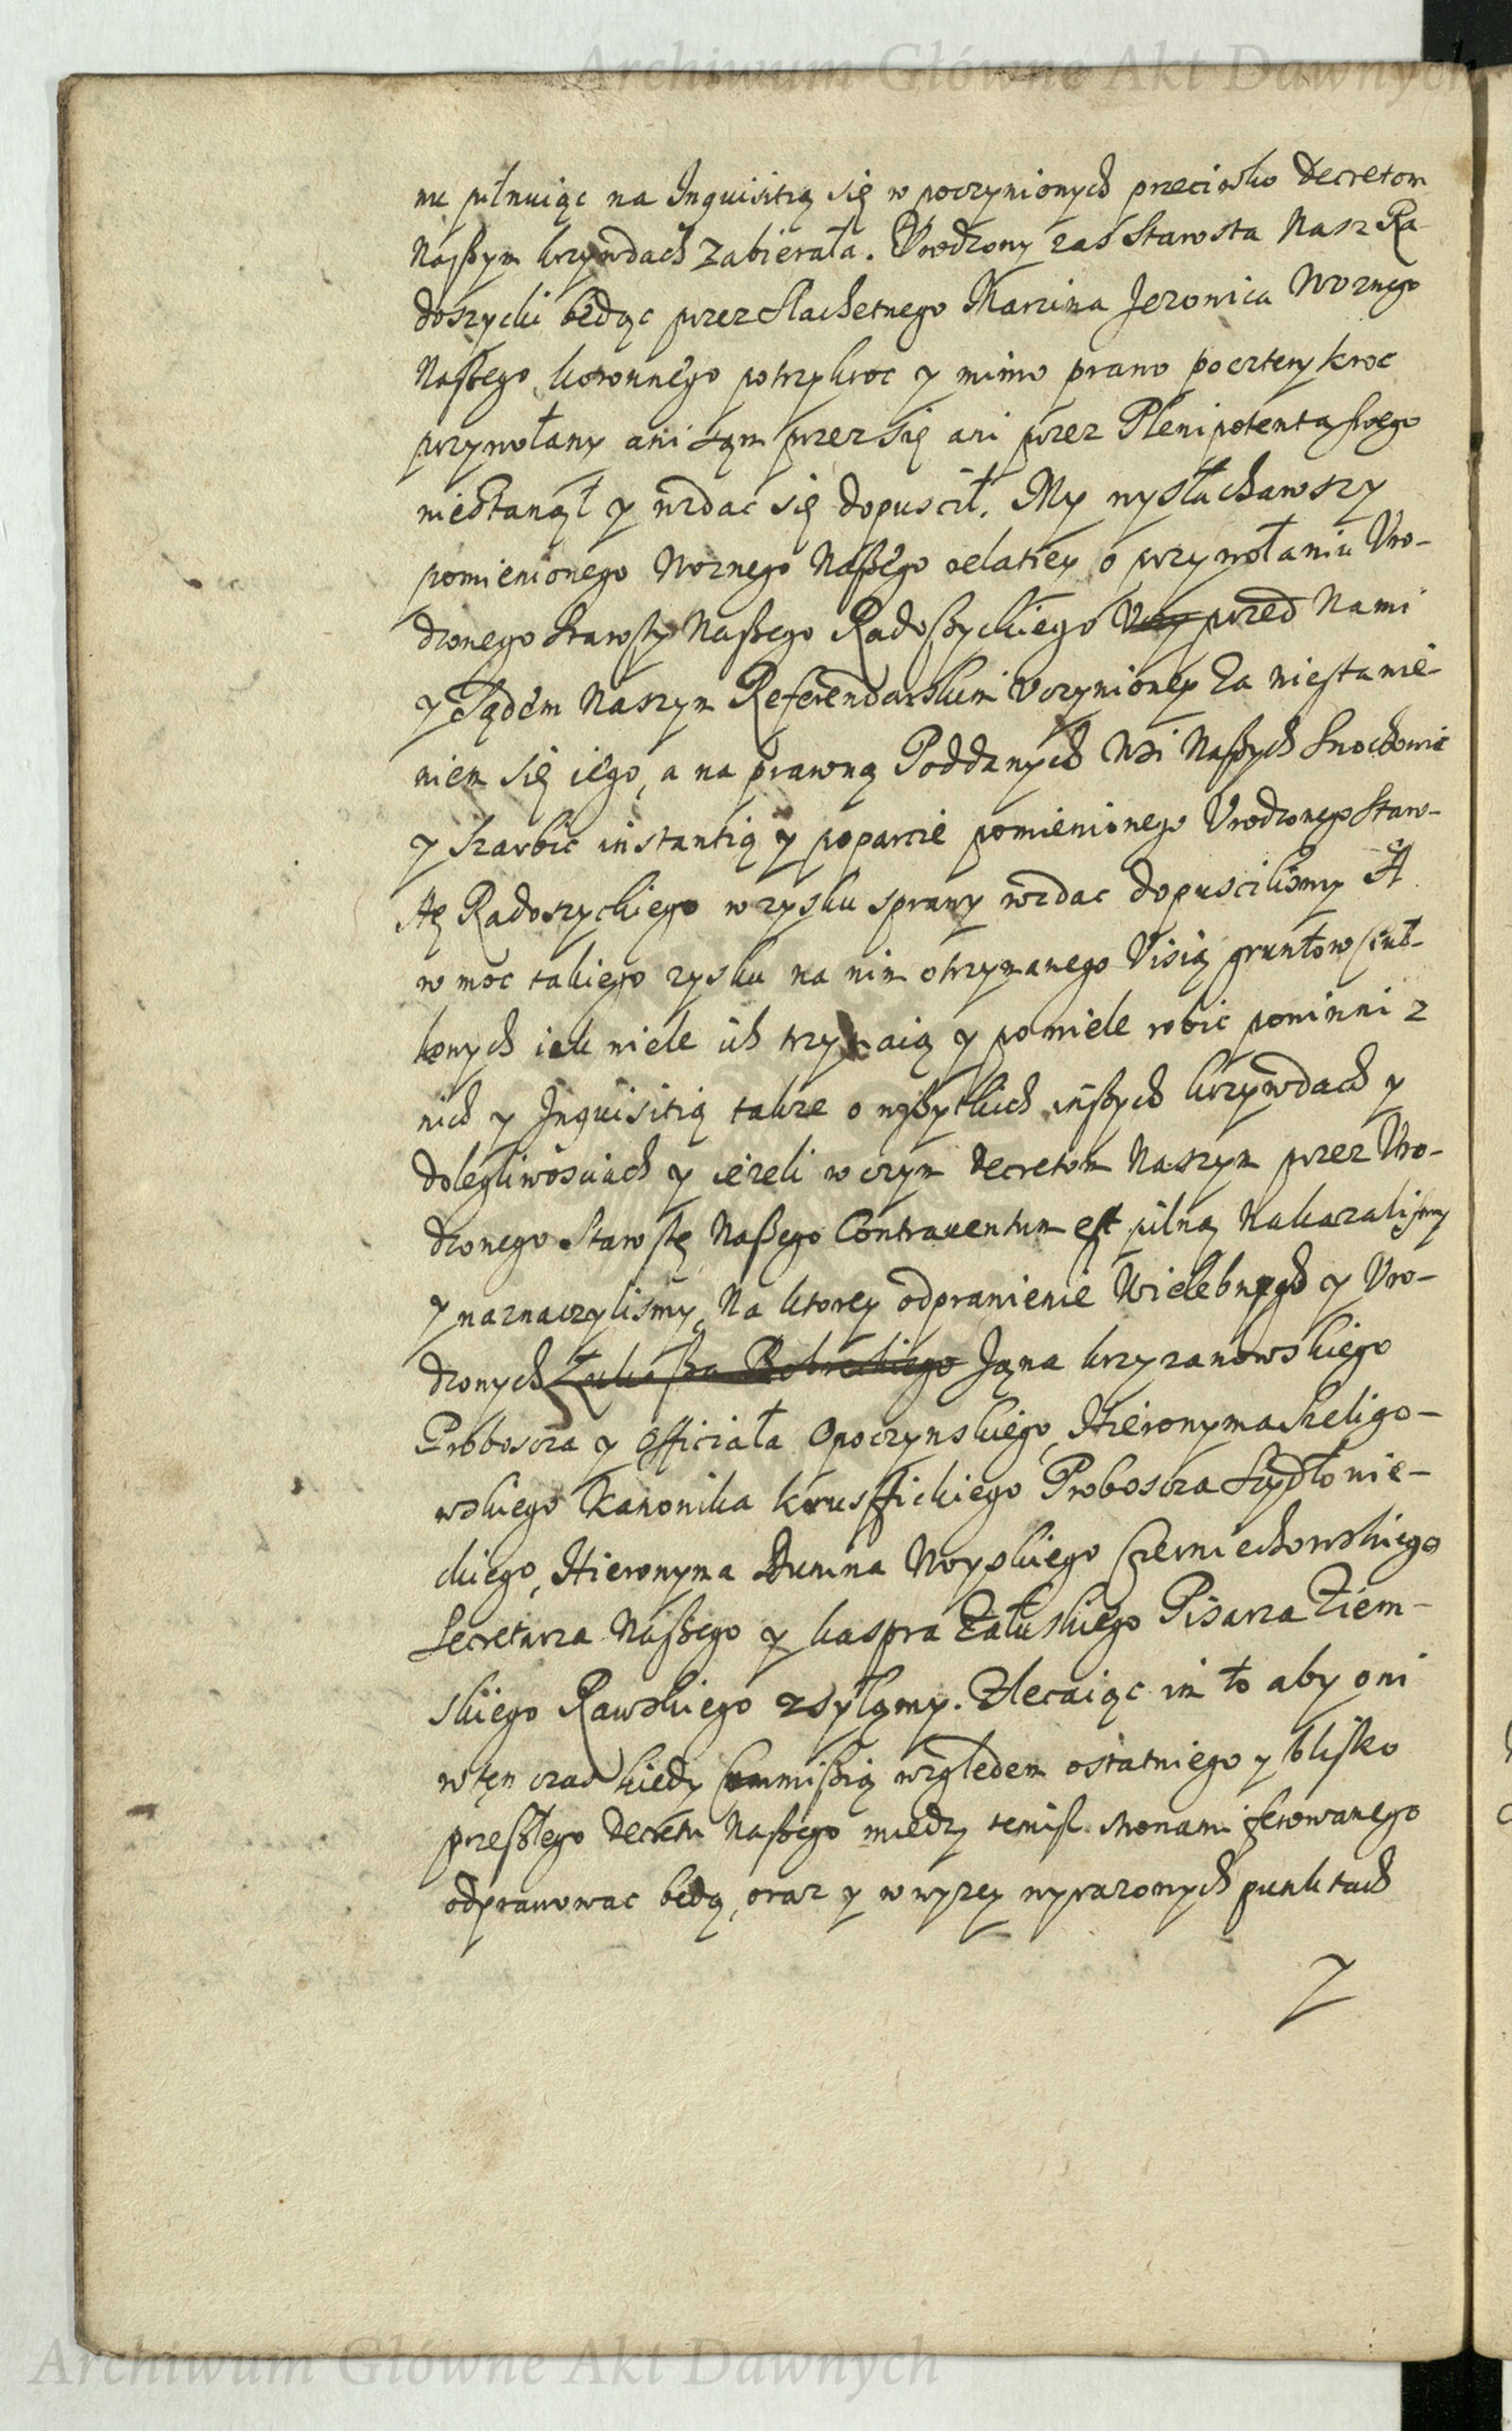 Archiwum Główne Akt Dawnych
nu pilnuiąc na Inquisitią się w poczynionych przeciwko Decretom
Naszym krzywdach zabierała. Vrodzony zas Starosta Nasz Ra-
doszycki będąc przez Slachetnego Marcina Jezonica Woznego
Naszego koronnego potrzykroc y mimo prawo poczterykroc
przywołany ani sąm przez się ani przez Plenipotentą swego
niestanął y wzdac się dopuscił. My wysłuchawszy
pomienionego Woznego Naszego relatiey o przywołaniu Vro-
dzonego Starosty Naszego Radoszyckiego przed Nami
y Sądem Naszym Referendarskim Vczynioney Za niestanie-
niem się iego, a na prawną Poddanych Wsi Naszych Snochowic
y Szarbic instantią y poparcie pomienionego Vrodzonego Staro-
stę Radoszyckiego w zysku sprawy wzdac dopuscilismy A
w moc takiego zysku na nim otrzymanego Visią gruntow
iak wiele ich trzymaią y powiele robic powinni z
nich y Inquisitią takze o wszytkich inszych krzywdach y
dolegliwosciach y iezeli w czym Decretom Naszym przez Vro-
dzonego Starostę Naszego Contrauentum est pilną Nakazalismy
y naznaczylismy, Na ktorey odprawienie Wielebnych y Vro-
dzonych Jana krzyzanowskiego
Proboscza y Officiała Opoczynskiego, Hieronyma Szeligo-
wskiego Kanonika krusfickiego Proboscza Szydłowie-
ckiego, Hieronyma Dunina Woyskiego Czerniechowskiego
Secretarza Naszego y kaspra Załuskiego Pisarza Ziem-
skiego Rawskiego zsyłamy. Zlecaiąc im to aby oni
w ten czas kiedy Commissią względem ostatniego y blisko
przeszłego Decretu Naszego miedzy temisz stronami ferowanego
odprawowac będą, oraz y w wyzey wyrazonych punktach
y
Archiwum Główne Akt Dawnych